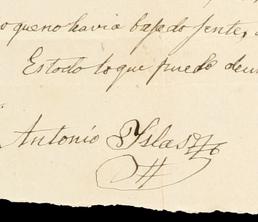 o que no havia bajado jente,
Es todo lo que puedo deci
Antonio Yslas